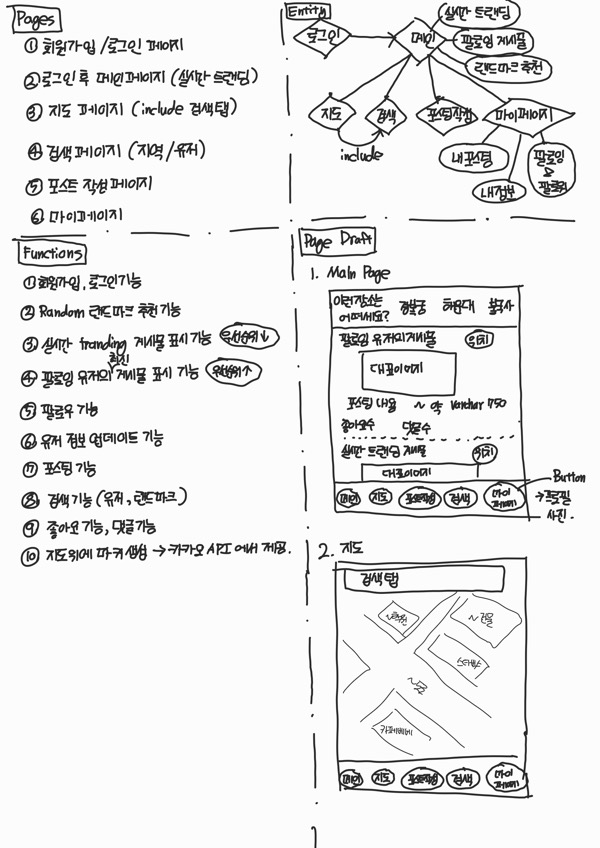 Pages
① 회원가입 /로그인 페이지
② 로그인 후 메인페이지 (실시간 트랜딩)
③ 지도 페이지 (include 검색탭)
④ 검색페이지 (지역/유저)
⑤ 포스트 작성페이지
⑥ 마이페이지
Entity
로그인
메인
실시간 트랜딩
팔로잉 게시물
랜드마크 추천
지도
검색
포스팅작성
마이페이지
include
내포스팅
내정보
팔로잉
&
팔로워
Functions
① 회원가입, 로그인 기능
② Random 랜드마크 추천 기능
③ 실시간 tranding 게시물 표시 기능 우선순위↓
④ 팔로잉 유저의 최신 게시물 표시 기능 우선순위↑
⑤ 팔로우 기능
⑥ 유저 정보 업데이트 기능
⑦ 포스팅 기능
⑧ 검색기능 (유저, 랜드마크)
⑨ 좋아요 기능, 댓글 기능
⑩ 지도위에 마커 생성 → 카카오 API 에서 제공.
Page Draft
1. Main Page
이런장소는 어떠세요? 경복궁 해운대 불국사
팔로잉 유저의 게시물 위치
대표이미지
포스팅 내용 ~ 약 Varchar 750
좋아요수 댓글수
실시간 트랜딩 게시물 위치
대표이미지
메인 지도 포스트작성 검색 마이페이지
Button
→프로필
사진.
2. 지도
검색탭
~건물
메인 지도 포스트작성 검색 마이페이지